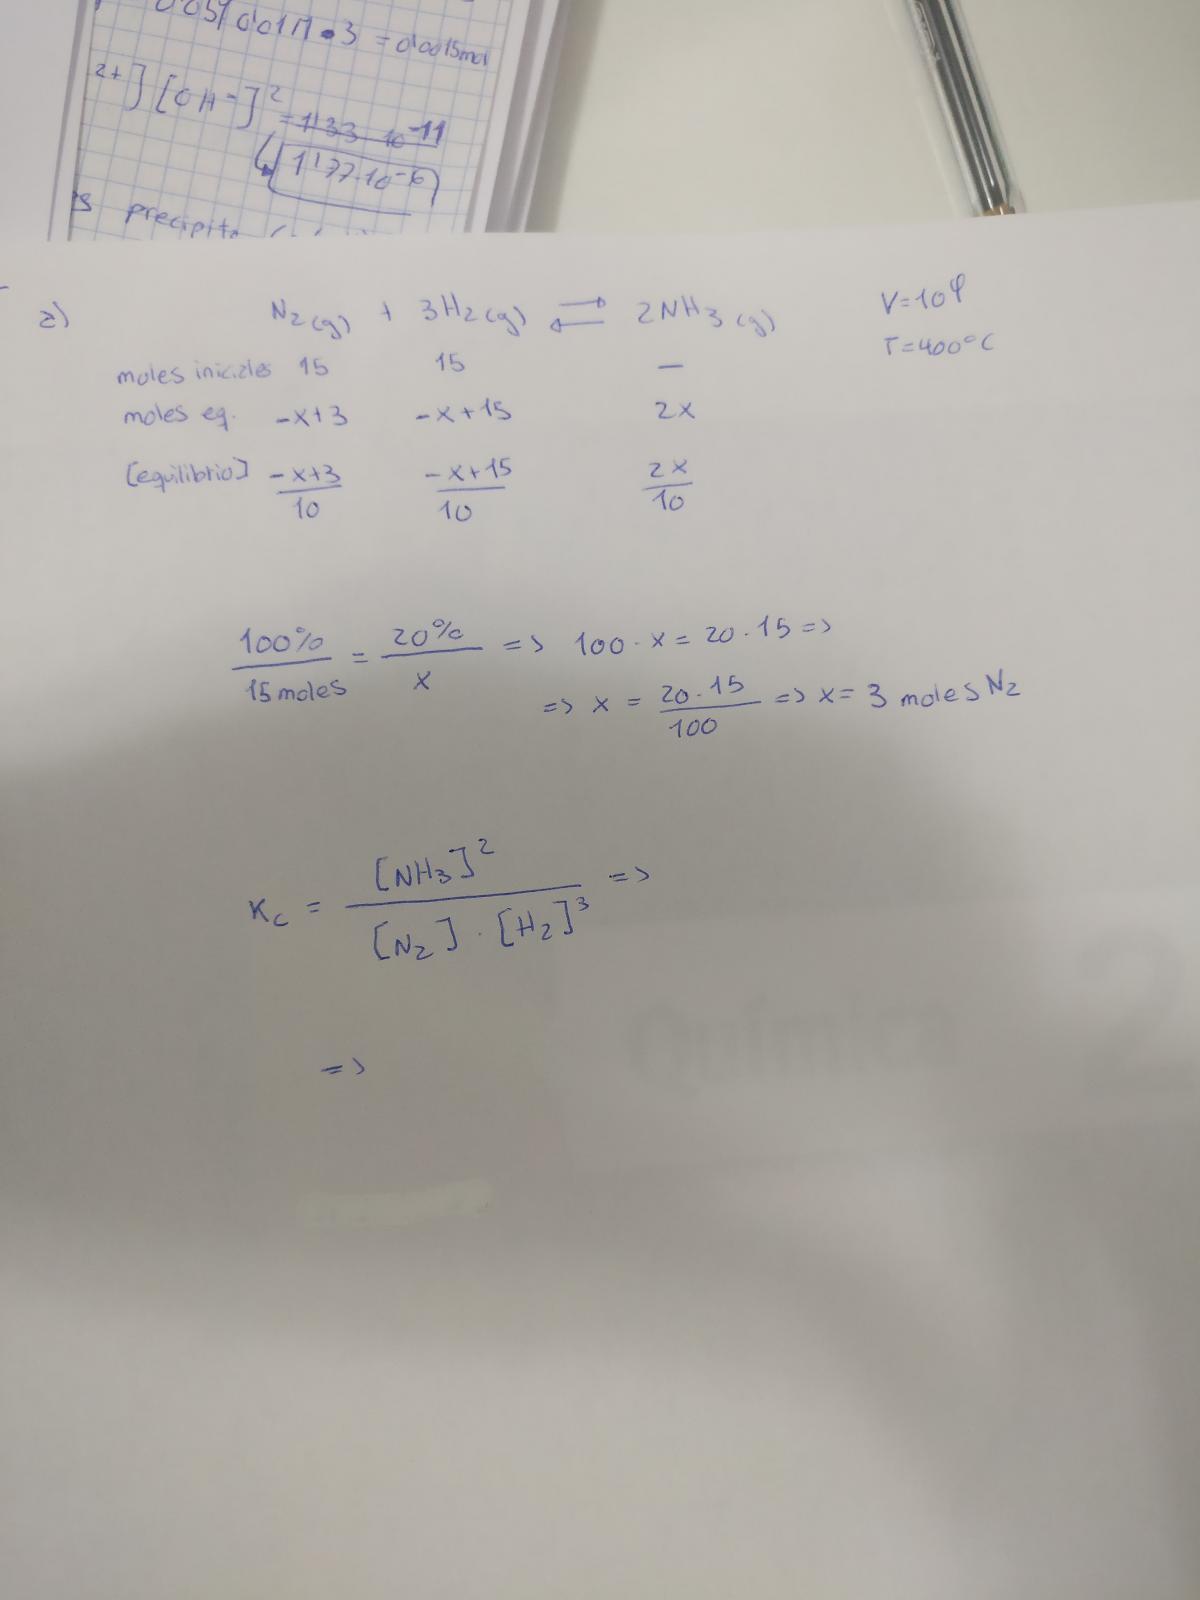 0'01M • 3 = 0'0015mol
2+] [OH-]² = 1'33 10^-11
1'77·10^-6
precipita
a) N2(g) + 3H2(g) ⇌ 2NH3(g) V=10l
T=400°C
moles iniciales 15 15 —
moles eq. -x+3 -x+15 2x
[equilibrio] -x+3/10 -x+15/10 2x/10
100%/15 moles = 20%/x => 100 · x = 20 · 15 =>
=> x = 20·15/100 => x = 3 moles N2
Kc = [NH3]²/[N2] · [H2]³ =>
=>
Química 2